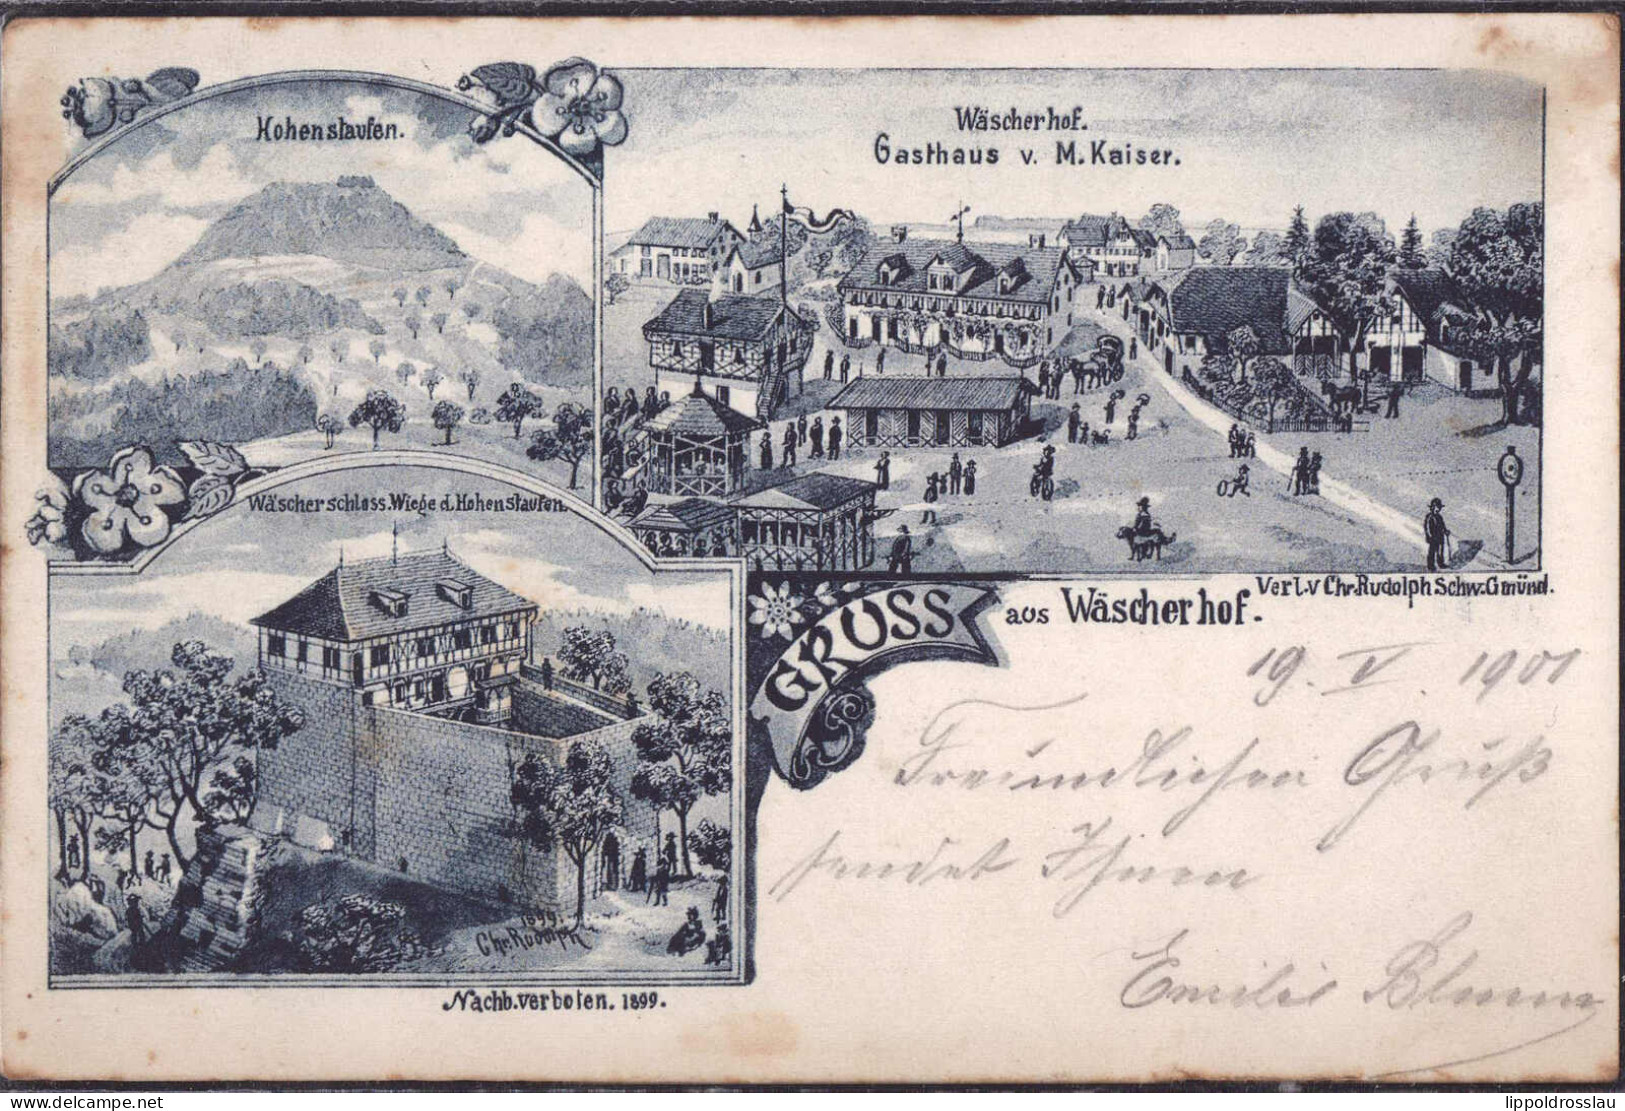 Hohenstaufen.
Wäscherhof.
Gasthaus v. M. Kaiser.
Wäscherschloss. Wiege d. Hohenstaufen.
1899.
Chr. Rudolph
Nachb. verboten. 1899.
GRUSS
aus Wäscherhof.
Verl. v Chr. Rudolph Schw. Gmünd.
19. V. 1901
Freundlichen Gruß
sendet Ihnen
Emilie Blum
delcampe.net
lippoldrosslau